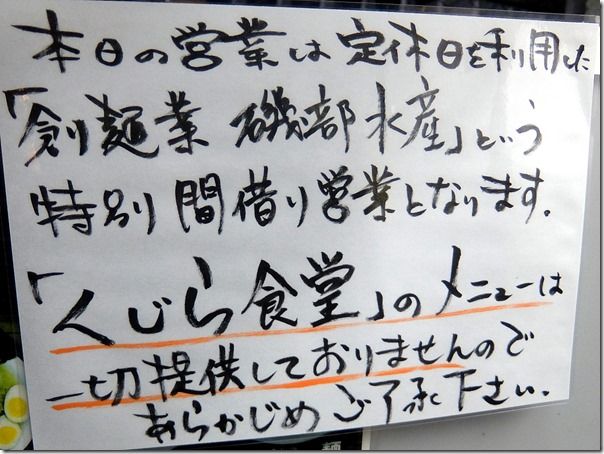 本日の営業は定休日を利用した
「創麺業 磯部水産」という
特別間借り営業となります.
「くじら食堂」のメニューは
一切提供しておりませんので
あらかじめご了承下さい.
麺